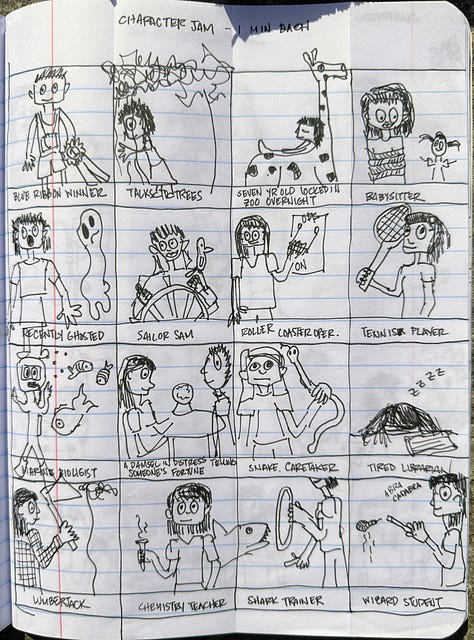 CHARACTER JAM - 1 MIN EACH
BLUE RIBBON WINNER
TALKS TO TREES
SEVEN YR OLD LOCKED IN
ZOO OVERNIGHT
BABYSITTER
OFF
ON
RECENTLY GHOSTED
SAILOR SAM
ROLLER COASTER OPER.
TENNIS PLAYER
ZZZZ
MARINE BIOLOGIST
A DAMSEL IN DISTRESS TELLING
SOMEONE'S FORTUNE
SNAKE CARETAKER
TIRED LIBRARIAN
ABRA
CADABRA
CHEMISTRY TEACHER
SHARK TRAINER
WIZARD STUDENT